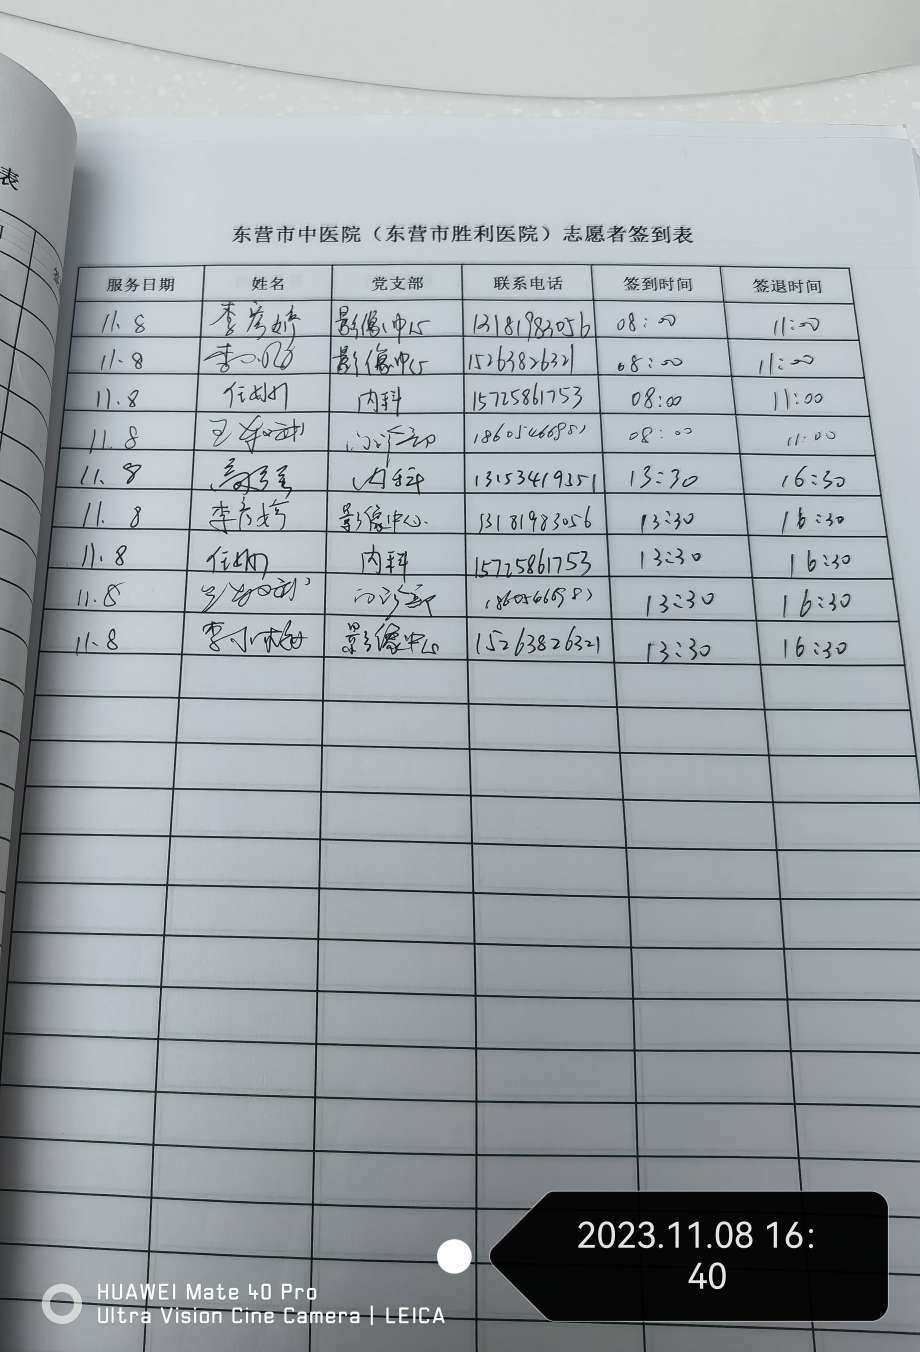 表
东营市中医院（东营市胜利医院）志愿者签到表
服务日期 姓名 党支部 联系电话 签到时间 签退时间
11.8 李彦婷 影像中心 13181983056 08:00 11:00
11.8 李小梅 影像中心 15263826321 08:00 11:00
11.8 任娜 内科 15725861753 08:00 11:00
11.8 王 门诊部 08:00 11:00
11.8 内科 13153419351 13:30 16:30
11.8 李彦婷 影像中心 13181983056 13:30 16:30
11.8 任娜 内科 15725861753 13:30 16:30
11.8 门诊部 13:30 16:30
11.8 李小梅 影像中心 15263826321 13:30 16:30
2023.11.08 16:
40
HUAWEI Mate 40 Pro
Ultra Vision Cine Camera | LEICA